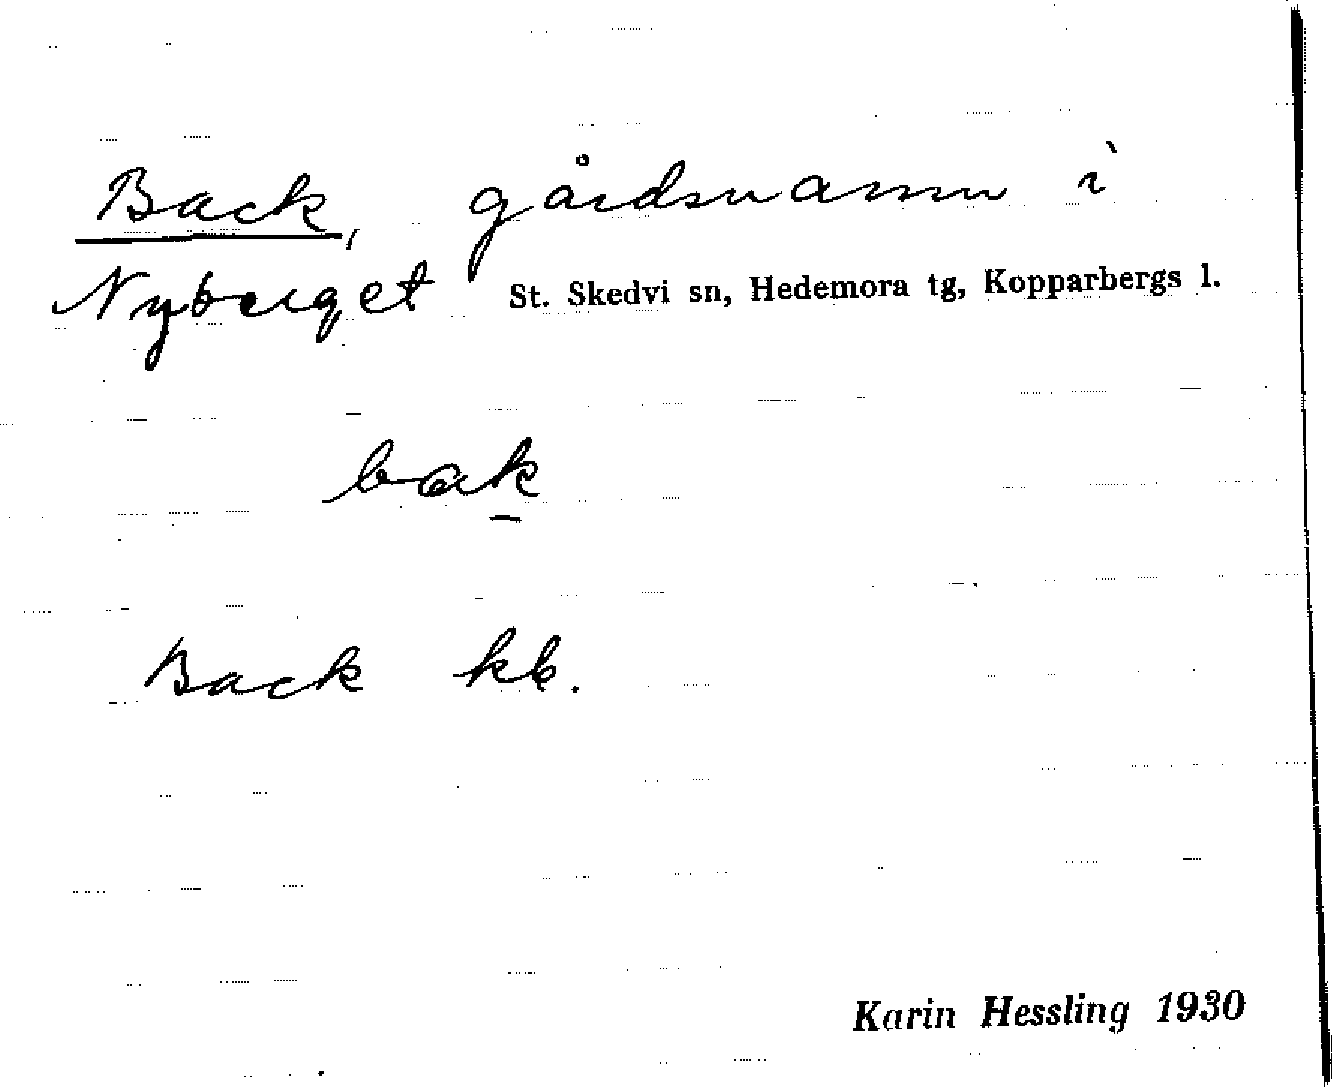 Back, gårdsnamn i
Nyberget St. Skedvi sn, Hedemora tg, Kopparbergs l.
bak
Back kb.
Karin Hessling 1930